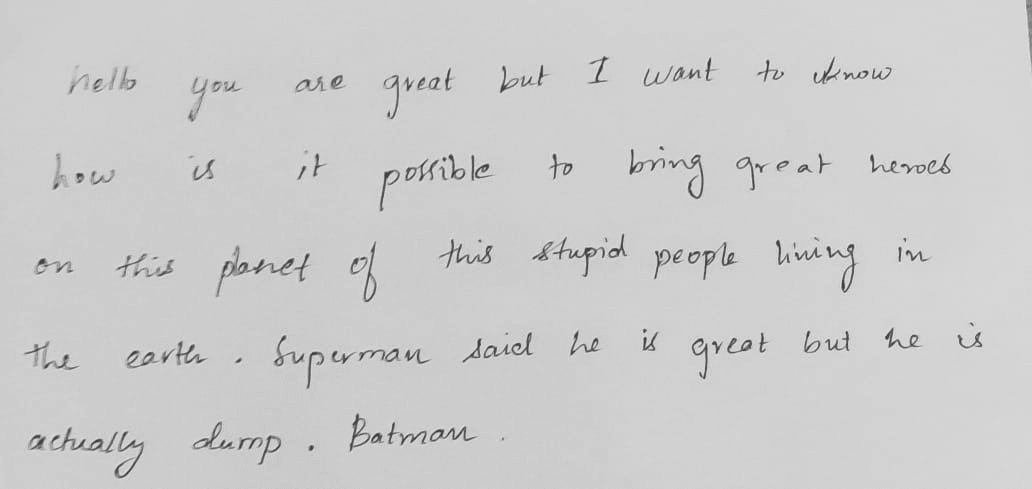 hello you are great but I want to know
how is it possible to bring great heroes
on this planet of this stupid people living in
the earth . Superman said he is great but he is
actually dump . Batman .